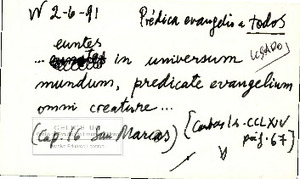 V 2-6-91 Prédica evangelio a todos
euntes
... in universum USADO
mundum, predicate evangelium
omni creature...
(Cap. 16 San Marcos) [Cartas 1ª-CCLXIV
pág. 67)